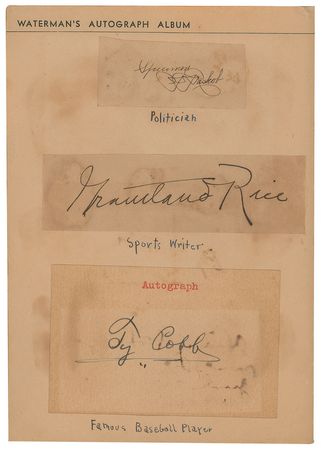 WATERMAN'S AUTOGRAPH ALBUM
Specimen
Politician
Grantland Rice
Sports Writer
Autograph
Ty Cobb
Famous Baseball Player